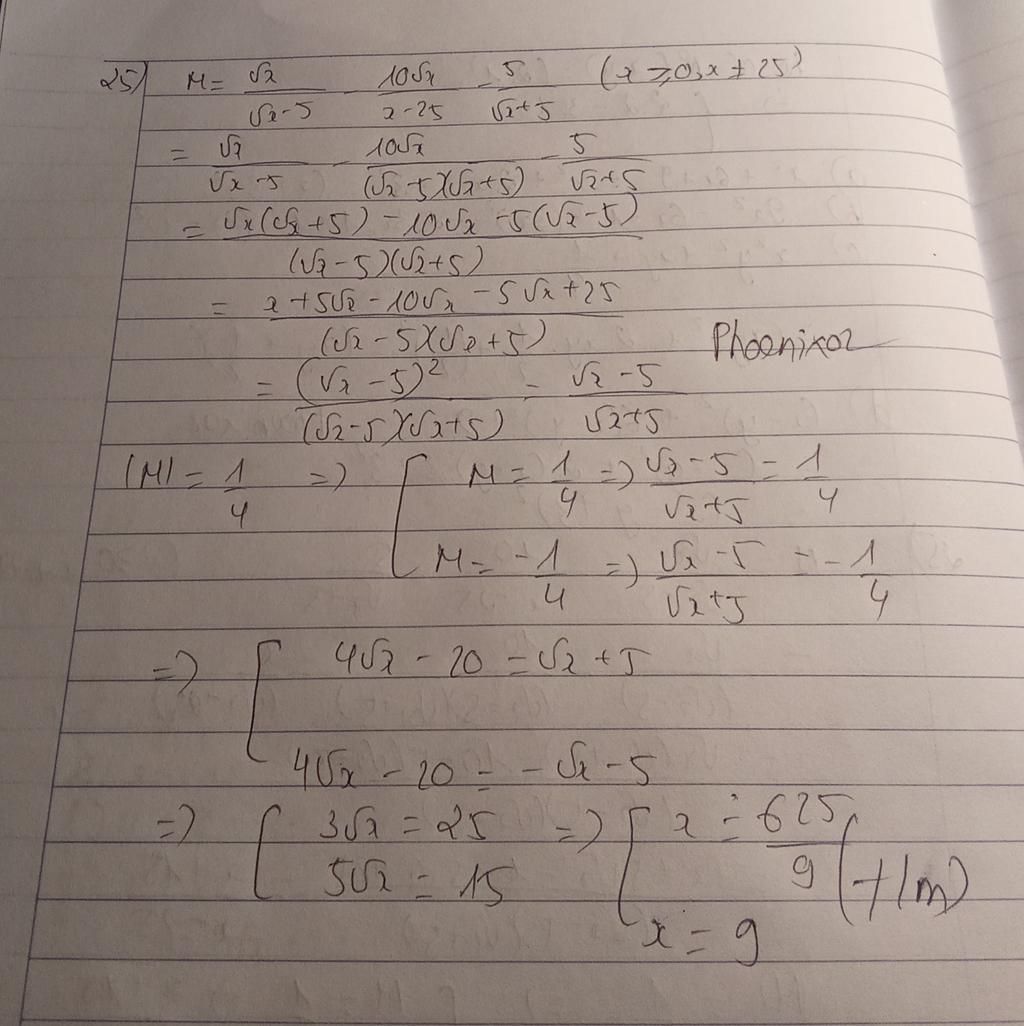 25) M = √x/(√x-5) - 10√x/(x-25) - 5/(√x+5) (x ≥ 0, x ≠ 25)
= √x/(√x-5) - 10√x/((√x-5)(√x+5)) - 5/(√x+5)
= (√x(√x+5) - 10√x - 5(√x-5))/((√x-5)(√x+5))
= (x + 5√x - 10√x - 5√x + 25)/((√x-5)(√x+5))
Phoenixoz
= (√x-5)²/((√x-5)(√x+5)) = (√x-5)/(√x+5)
|M| = 1/4 => [ M = 1/4 => (√x-5)/(√x+5) = 1/4
M = -1/4 => (√x-5)/(√x+5) = -1/4
=> [ 4√x - 20 = √x + 5
4√x - 20 = -√x - 5
=> [ 3√x = 25 => [ x = 625/9 (t/m)
5√x = 15
x = 9